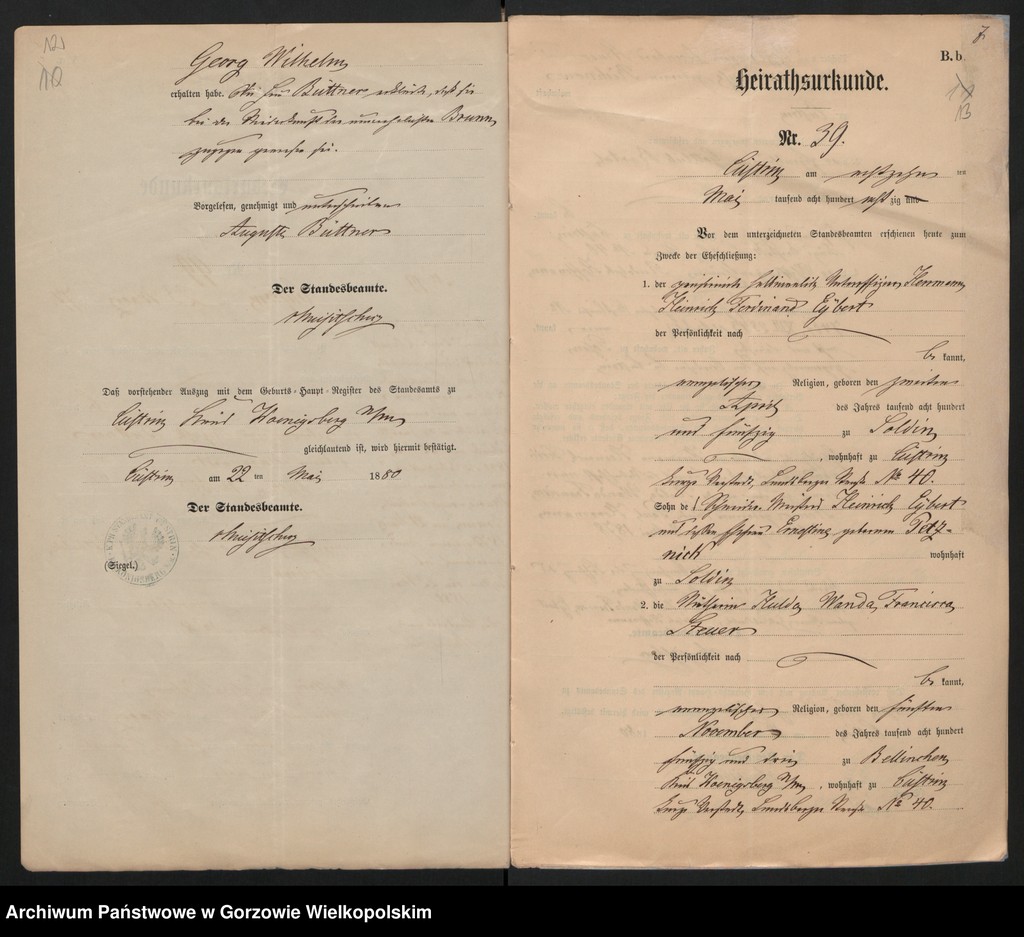 12
12
Georg Wilhelm
erhalten habe. Die Frau Büttner erklärte, daß sie
bei der Niederkunft der unverehelichten Brunn
zugegen gewesen sei.
Vorgelesen, genehmigt und unterschrieben
Auguste Büttner
Der Standesbeamte.
Daß vorstehender Auszug mit dem Geburts-Haupt-Register des Standesamts zu
Cüstrin Kreis Koenigsberg N/M
gleichlautend ist, wird hiermit bestätigt.
Cüstrin am 22 ten Mai 1880
Der Standesbeamte.
(Siegel.)
7
B. b
13
Heirathsurkunde.
Nr. 39.
Cüstrin am sechszehn ten
Mai tausend acht hundert achtzig und
Vor dem unterzeichneten Standesbeamten erschienen heute zum
Zwecke der Eheschließung:
1. der Unteroffizier Herrmann
Heinrich Ferdinand Eybert
der Persönlichkeit nach
be kannt,
evangelischer Religion, geboren den zweiten
April des Jahres tausend acht hundert
und fünfzig zu Soldin
, wohnhaft zu Cüstrin
kurze Vorstadt, Landsberger Straße No 40.
Sohn des Schneider Meisters Heinrich Eybert
und dessen Ehefrau Ernestine geborenen Patz-
nick wohnhaft
zu Soldin
2. die Hulda Wanda Francisca
Steuer
der Persönlichkeit nach
be kannt,
evangelischer Religion, geboren den fünften
November des Jahres tausend acht hundert
fünfzig und drei zu Bellinchen
Kreis Koenigsberg N/M, wohnhaft zu Cüstrin
kurze Vorstadt, Landsberger Straße No 40.
Archiwum Państwowe w Gorzowie Wielkopolskim